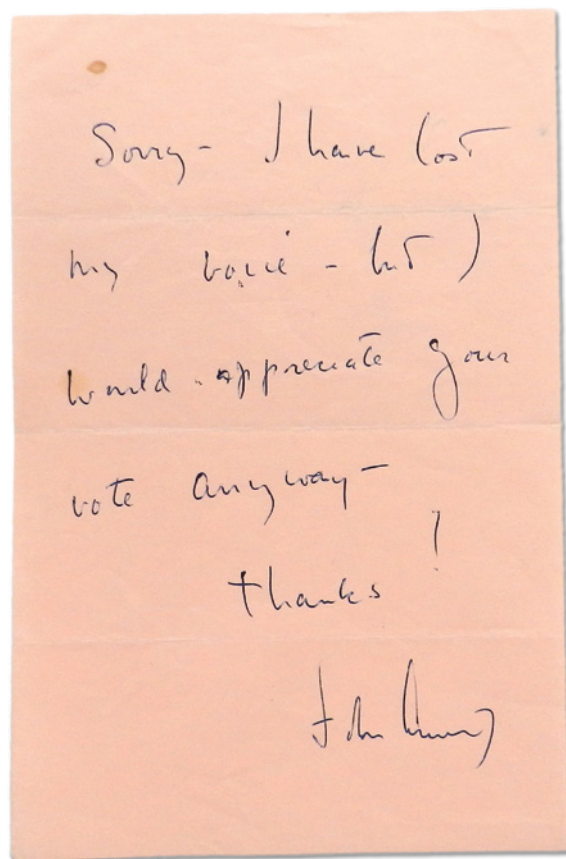 Sorry - I have lost
my voice - but I
would appreciate your
vote anyway -
thanks !
John